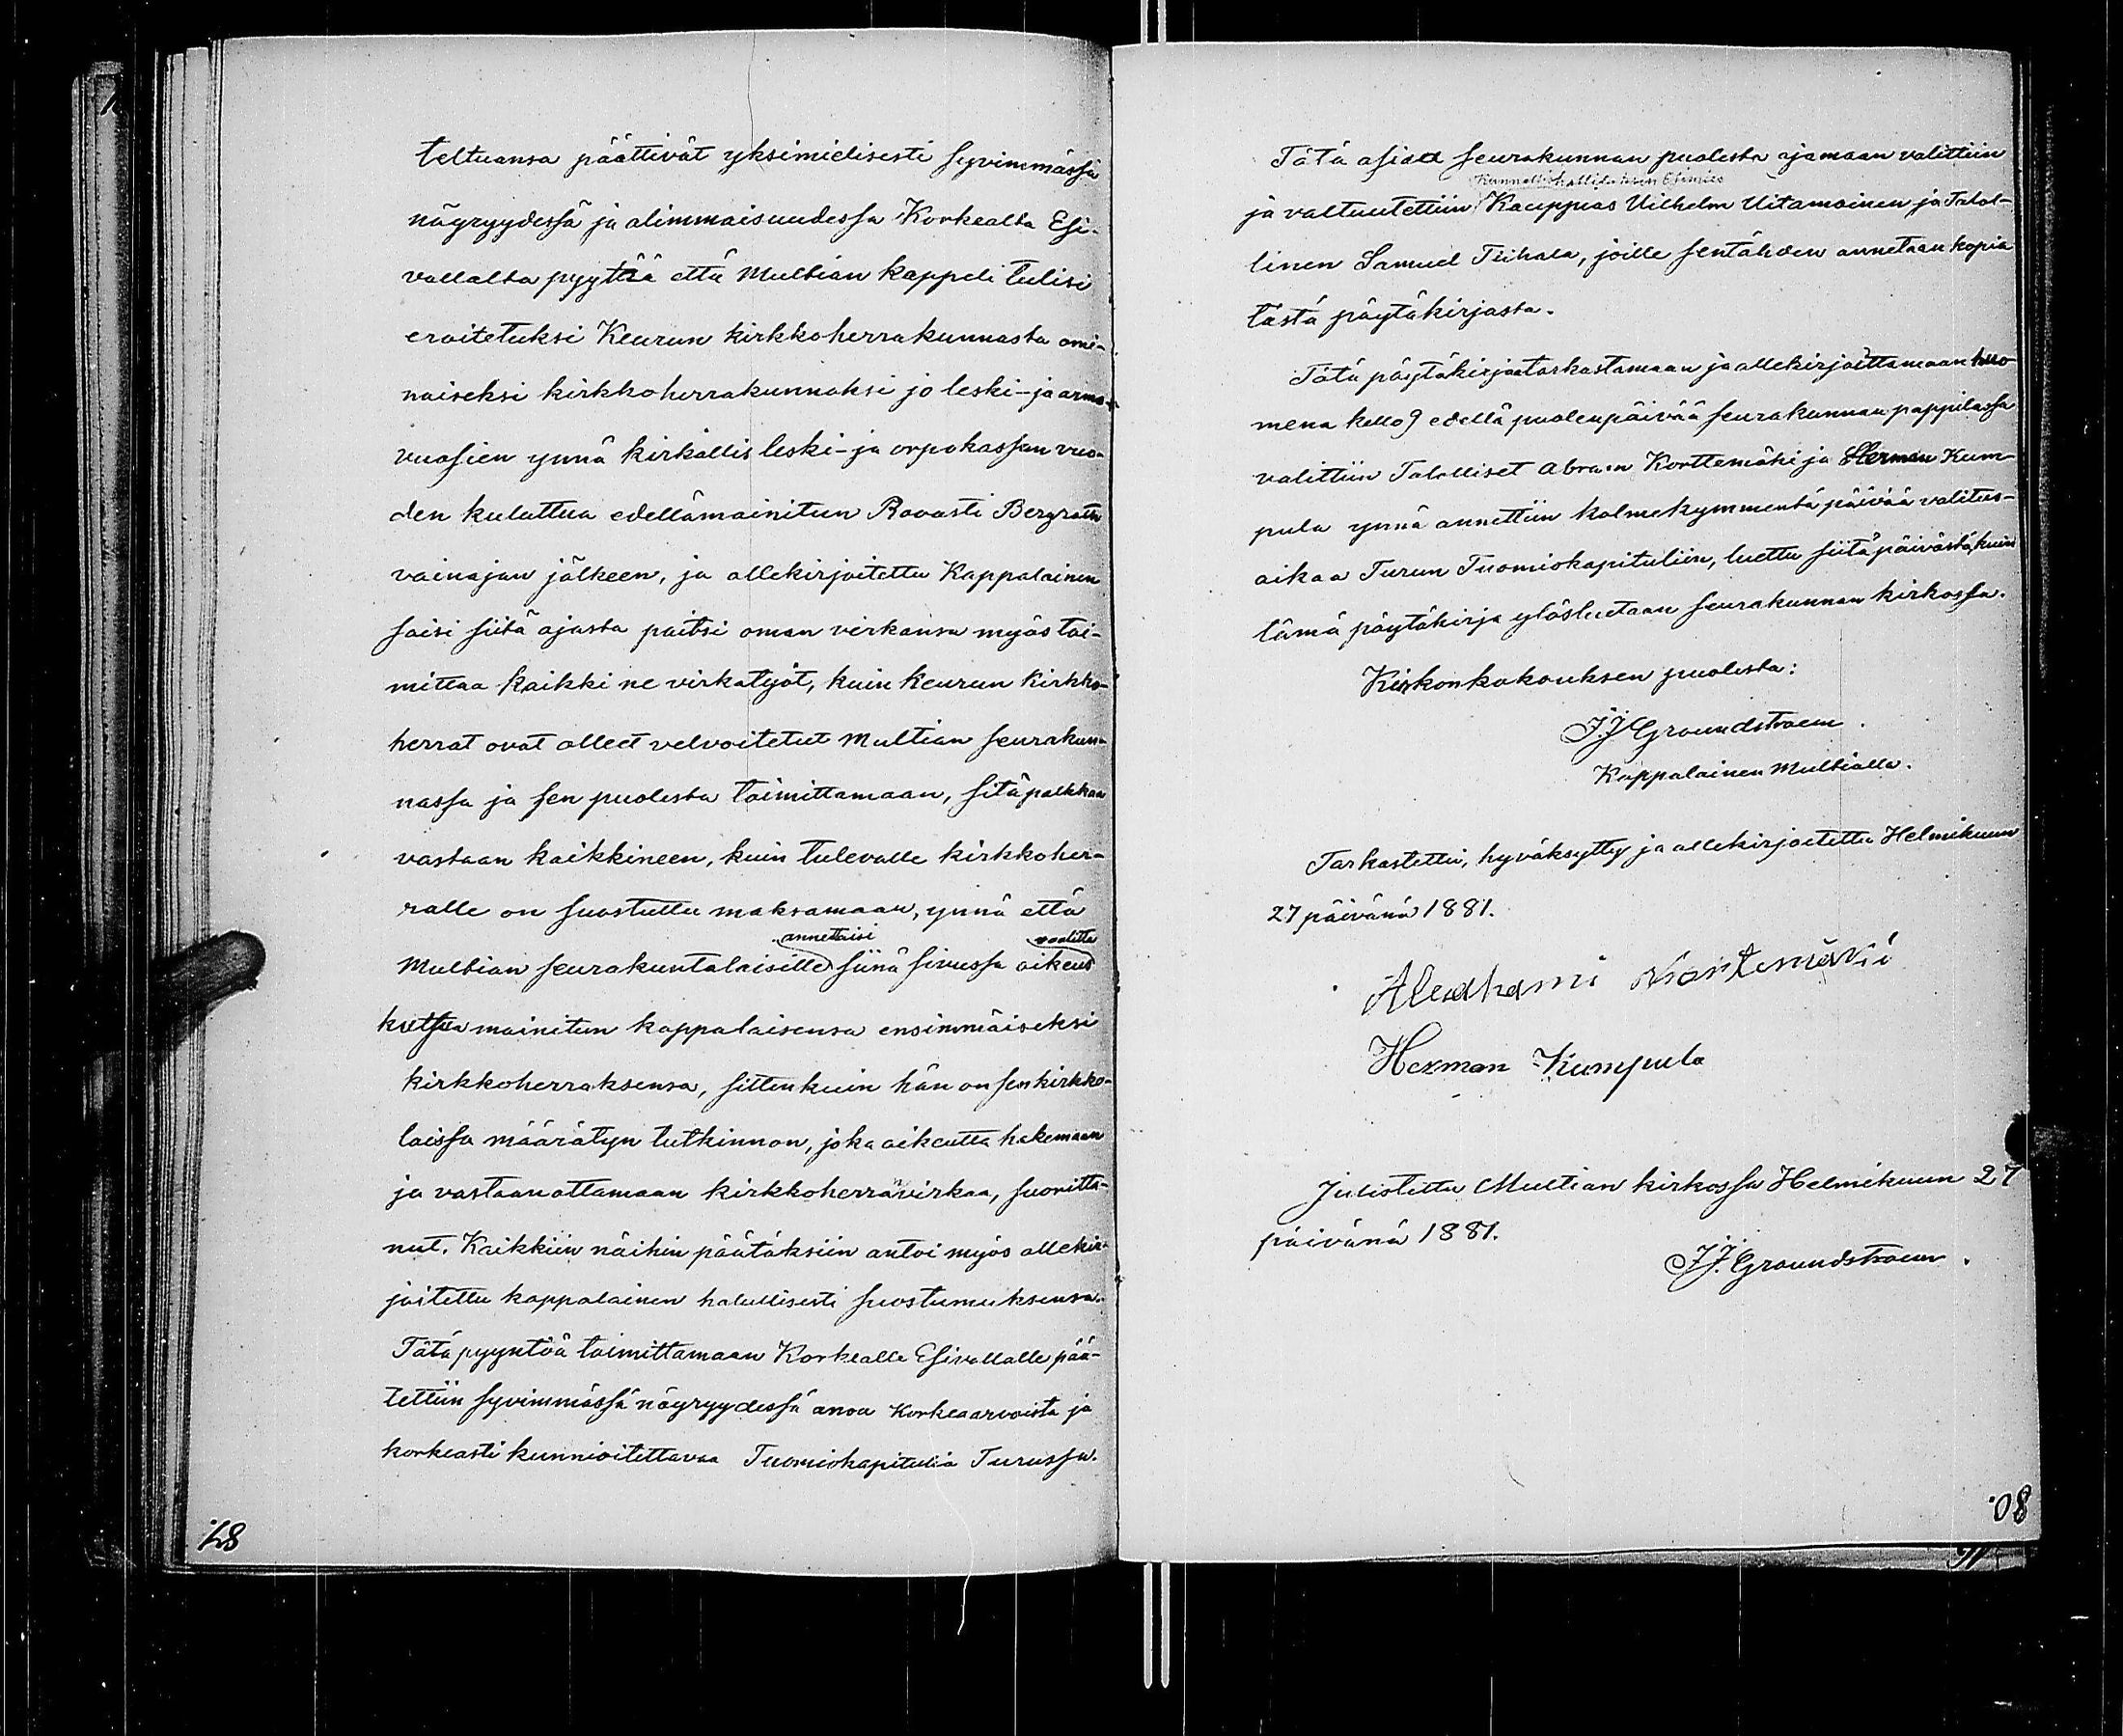 teltuansa päättivät yksimielisesti syvimmässä
nöyryydessä ja alimmaisuudessa Korkealta Esi-
vallalta pyytää että Multian kappeli tulisi
eroitetuksi Keurun kirkkoherrakunnasta omi-
naiseksi kirkkoherrakunnaksi jo leski- ja armo-
vuosien ynnä kirkollis leski- ja orpokassan vuo-
den kuluttua edellämainitun Rovasti Bergroth
vainajan jälkeen, ja allekirjoitettu Kappalainen
saisi siitä ajasta paitsi oman virkansa myös toi-
mittaa kaikki ne virkatyöt, kuin Keurun Kirkko-
herrat ovat olleet velvoitetut Multian seurakun-
nassa ja sen puolesta toimittamaan, sitä palkkaa
vastaan kaikkineen, kuin tulevalle kirkkoher-
ralle on suostuttu maksamaan, ynnä että
annettaisi vaalitta
Multian seurakuntalaisille siinä sivussa oikeus
kutsua mainitun kappalaisensa ensimmäiseksi
kirkkoherraksensa, sittenkuin hän on sen kirkko-
laissa määrätyn tutkinnon, joka oikeutta hakemaan
ja vastaanottamaan kirkkoherranvirkaa, suoritta-
nut. Kaikkiin näihin päätöksiin antoi myös allekir-
joitettu kappalainen halullisesti suostumuksensa.
Tätä pyyntöä toimittamaan Korkealle Esivallalle pää-
tettiin syvimmässä nöyryydessä anoa Korkeaarvoista ja
korkeasti kunnioitettavaa Tuomiokapitulia Turussa.
87.
Tätä asiaa seurakunnan puolesta ajamaan valittiin
Kunnallishallituksen Esimies
ja valtuutettiin Kauppias Vilhelm Uitamoinen ja Talol-
linen Samuel Tiihala, joille sentähden annetaan kopia
tästä pöytäkirjasta.
Tätä pöytäkirjaa tarkastamaan ja allekirjoittamaan huo-
mena kello 9 edellä puolenpäivää seurakunnan pappilassa
valittiin Talolliset Abram Korttemäki ja Herman Kum-
pula ynnä annettiin kolmekymmentä päivää valitus-
aikaa Turun Tuomiokapituliin, luettu siitä päivästä, kuin
tämä pöytäkirja ylösluetaan seurakunnan kirkossa.
Kirkonkokouksen puolesta:
J. J. Groundstroem.
Kappalainen Multialla.
Tarkastettu, hyväksytty ja allekirjoitettu Helmikuun
27 päivänä 1881.
Herman Kumpula
Julistettu Multian kirkossa Helmikuun 27
päivänä 1881.
J. J. Groundstroem.
80.